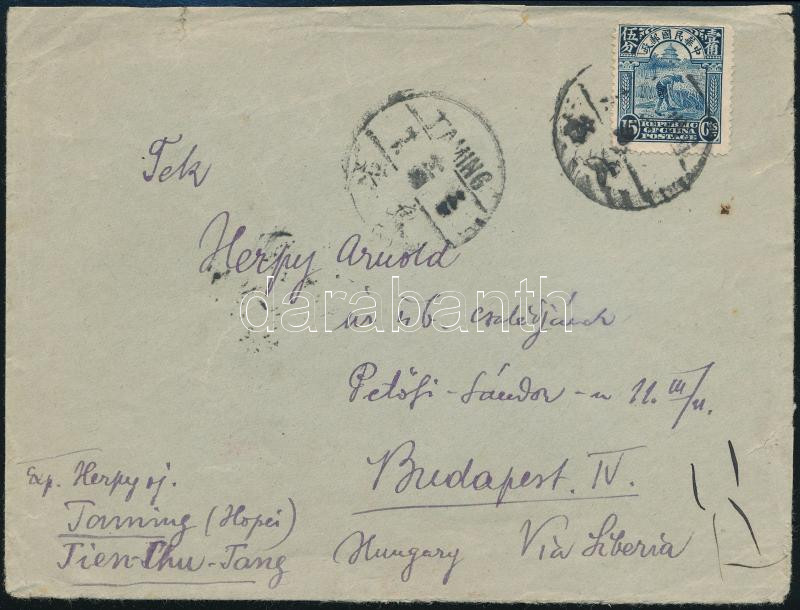 中華民國郵政
壹角
伍分
15 Cts
REPUBLIC
OF CHINA
POSTAGE
TAMING
Tek
Herpy Arnold
úr és b. családjának
Petőfi-Sándor-u 11. III/11.
Budapest. IV.
Hungary Via Siberia
Exp. Herpy oj.
Taming (Hopei)
Tien-Chu-Tang
darabanth